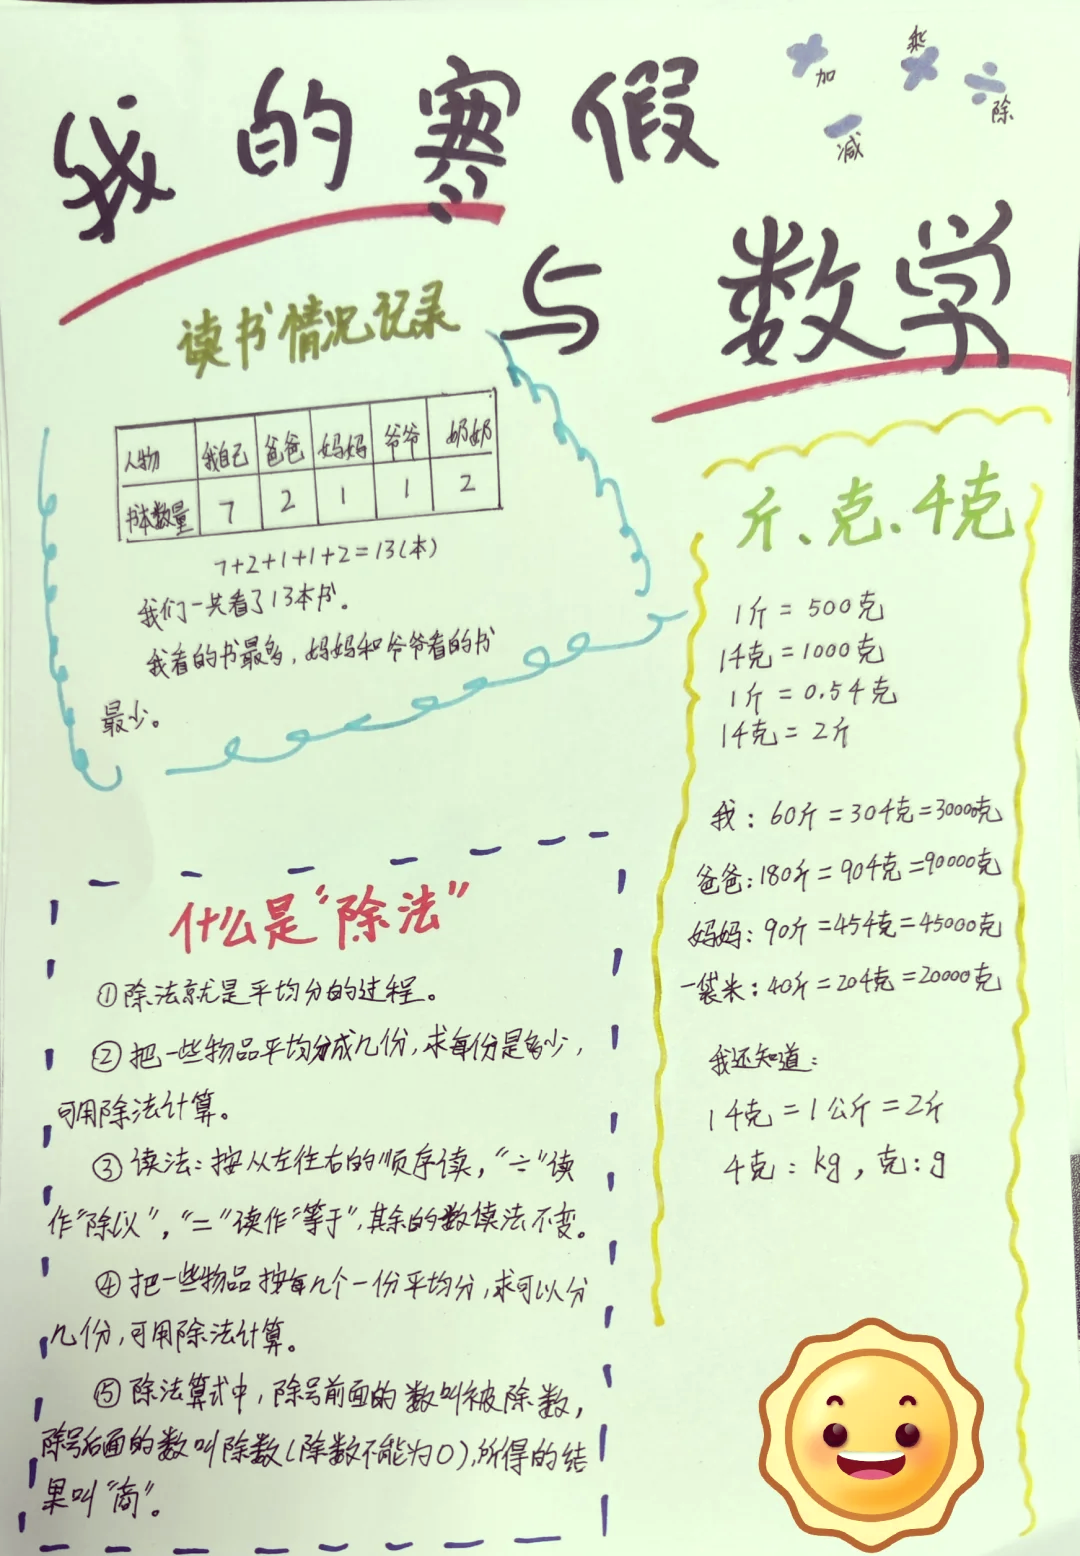 我的寒假
与数学
加
减
乘
除
读书情况记录
人物 我自己 爸爸 妈妈 爷爷 奶奶
书本数量 7 2 1 1 2
7+2+1+1+2=13(本)
我们一共看了13本书。
我看的书最多,妈妈和爷爷看的书
最少。
斤、克、千克
1斤=500克
1千克=1000克
1斤=0.5千克
1千克=2斤
我:60斤=30千克=30000克
爸爸:180斤=90千克=90000克
妈妈:90斤=45千克=45000克
一袋米:40斤=20千克=20000克
我还知道:
1千克=1公斤=2斤
千克:kg,克:g
什么是“除法”
①除法就是平均分的过程。
②把一些物品平均分成几份,求每份是多少,
可用除法计算。
③读法:按从左往右的顺序读,“÷”读
作“除以”,“=”读作“等于”,其余的数读法不变。
④把一些物品按每几个一份平均分,求可以分
几份,可用除法计算。
⑤除法算式中,除号前面的数叫被除数,
除号后面的数叫除数(除数不能为0),所得的结
果叫“商”。